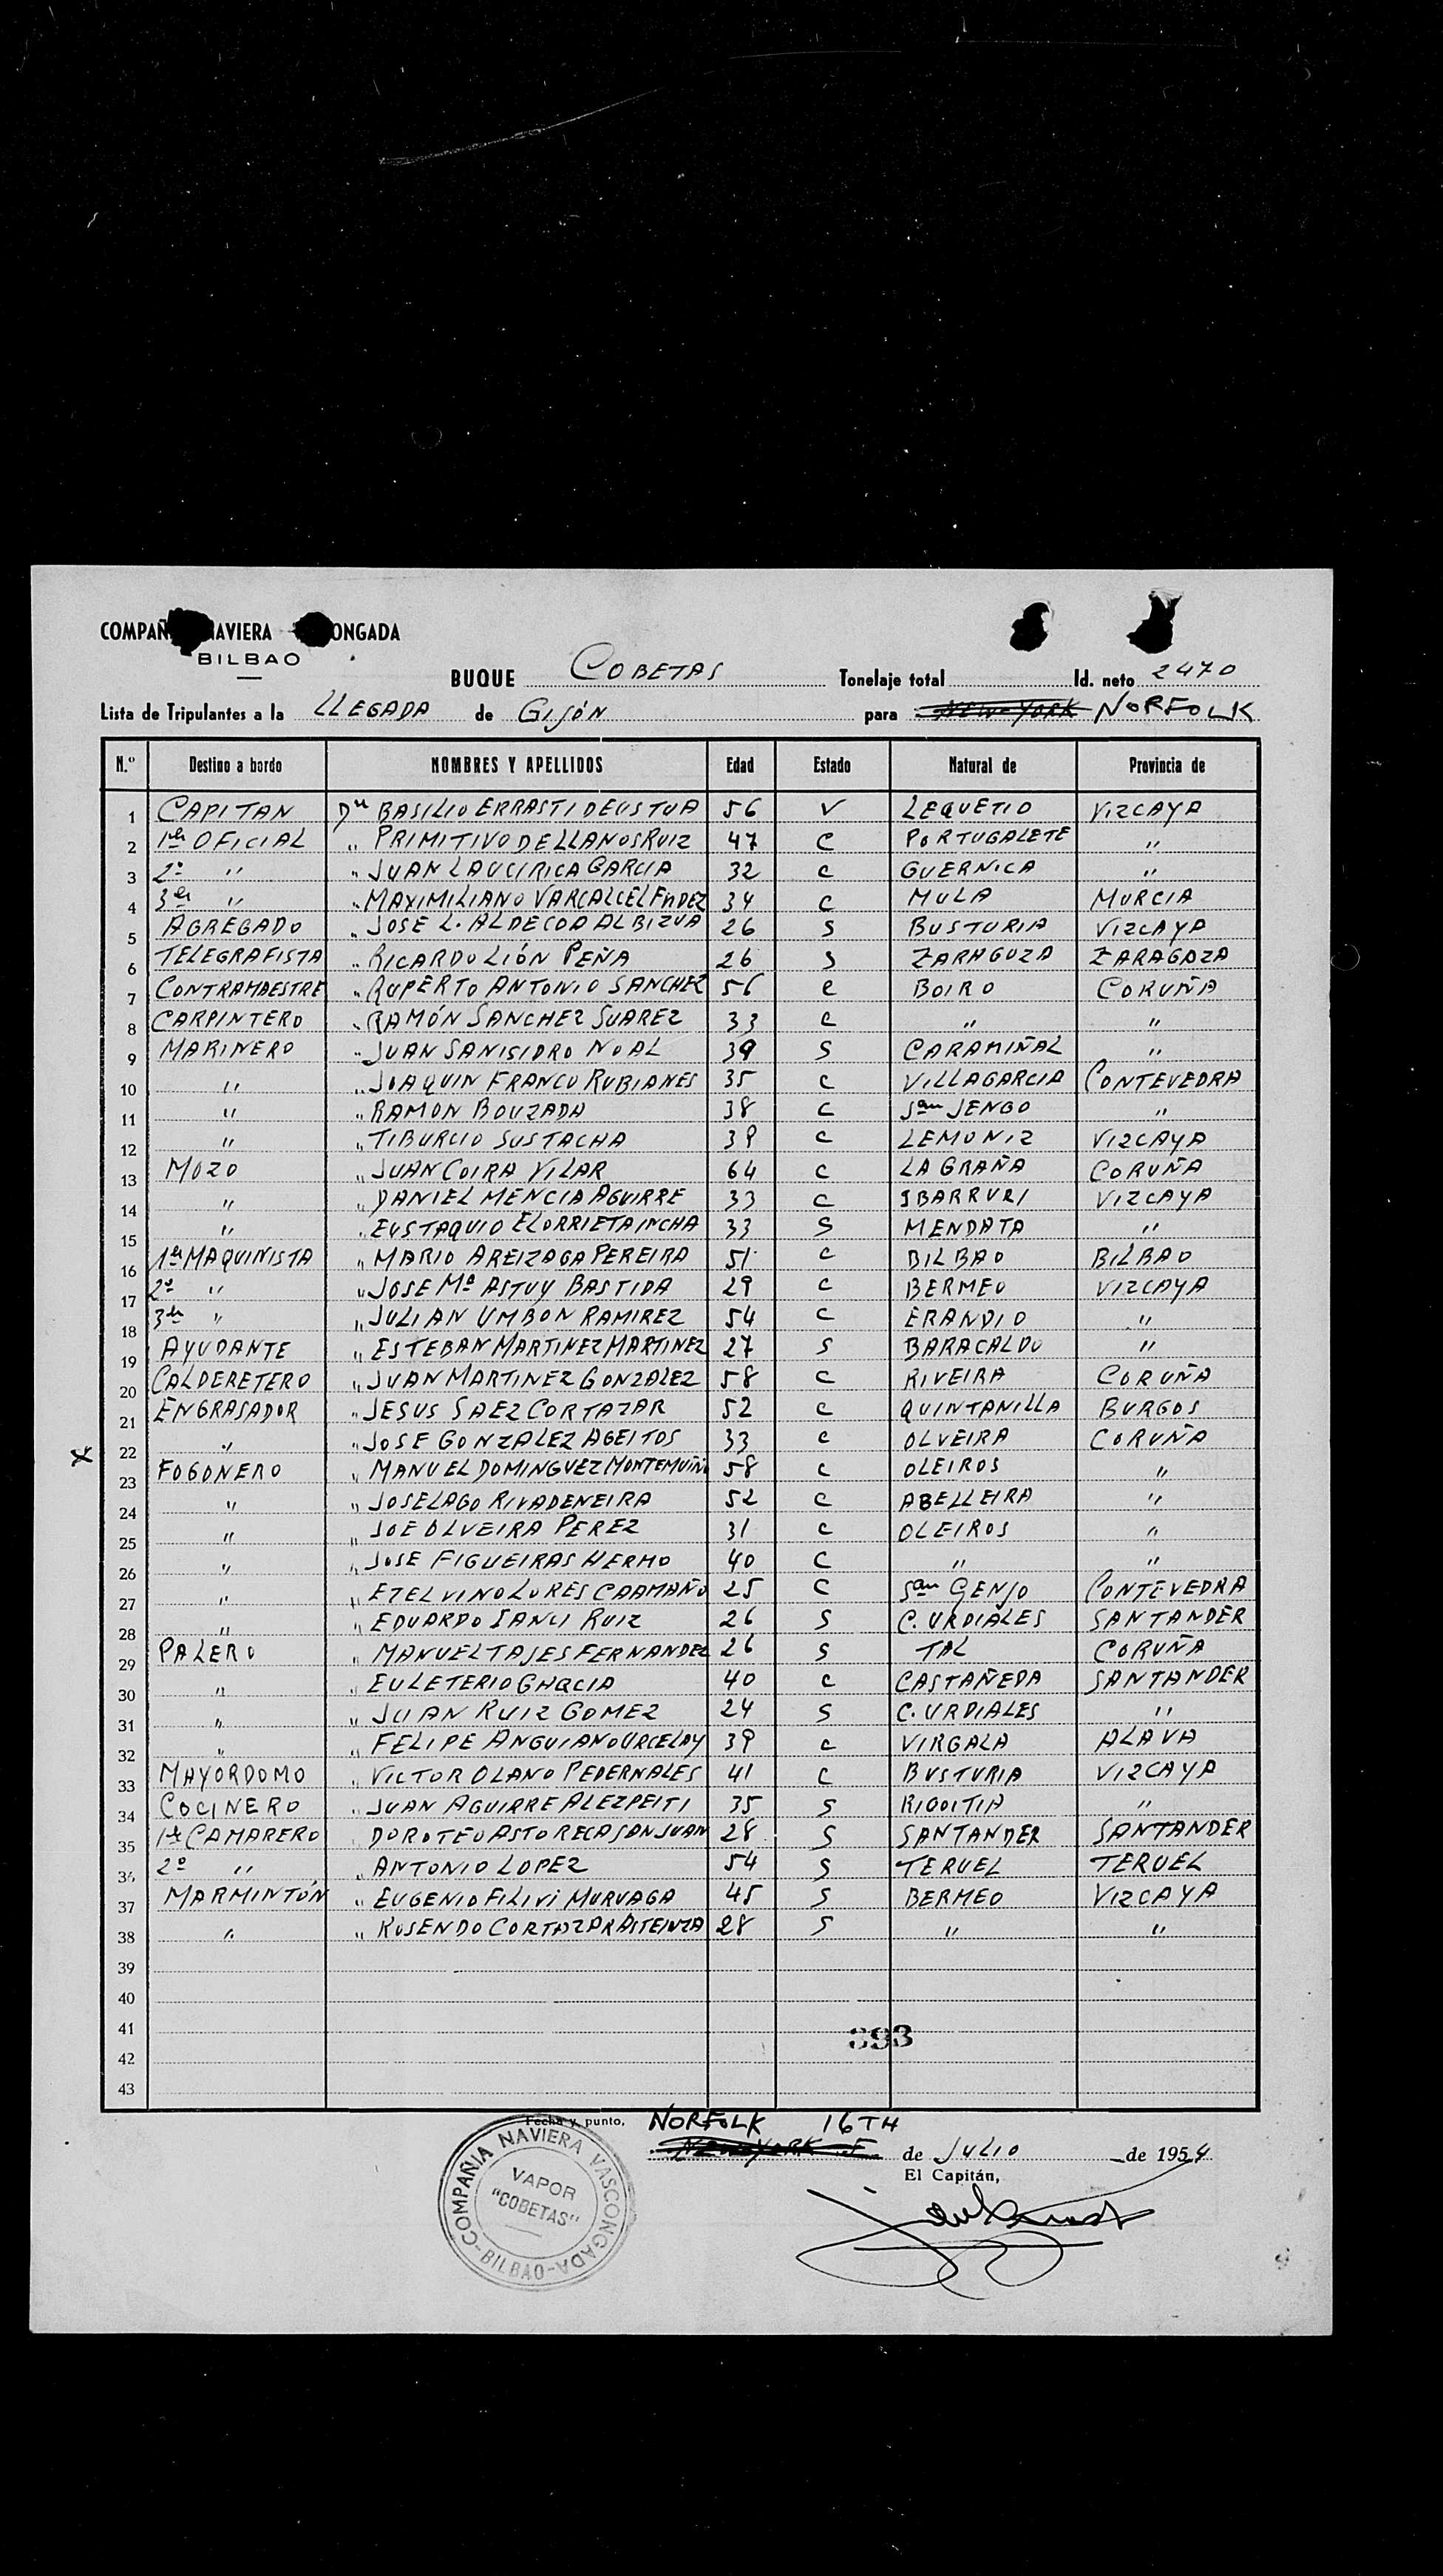 COMPAÑ AVIERA ONGADA
BILBAO
BUQUE COBETAS Tonelaje total Id. neto 2470
Lista de Tripulantes a la LLEGADA de GIJÓN para NEW-YORK NORFOLK
N.º Destino a bordo NOMBRES Y APELLIDOS Edad Estado Natural de Provincia de
1 CAPITAN Dn BASILIO ERRASTI DEUSTUA 56 V LEQUETIO VIZCAYA
2 1er OFICIAL " PRIMITIVO DE LLANOS RUIZ 47 C PORTUGALETE "
3 2º " " JUAN LAUCIRICA GARCIA 32 C GUERNICA "
4 3er " " MAXIMILIANO VARCALCEL FNDEZ 34 C MULA MURCIA
5 AGREGADO " JOSE L. ALDECOA ALBIZUA 26 S BUSTURIA VIZCAYA
6 TELEGRAFISTA " RICARDO LIÓN PEÑA 26 S ZARAGOZA ZARAGOZA
7 CONTRAMAESTRE " RUPERTO ANTONIO SANCHEZ 56 C BOIRO CORUÑA
8 CARPINTERO " RAMÓN SANCHEZ SUAREZ 33 C " "
9 MARINERO " JUAN SANISIDRO NOAL 39 S CARAMIÑAL "
10 " " JOAQUIN FRANCO RUBIANES 35 C VILLAGARCIA PONTEVEDRA
11 " " RAMON BOUZADA 38 C San JENGO "
12 " " TIBURCIO SUSTACHA 39 C LEMONIZ VIZCAYA
13 MOZO " JUAN COIRA VILAR 64 C LA GRAÑA CORUÑA
14 " " DANIEL MENCIA AGUIRRE 33 C IBARRURI VIZCAYA
15 " " EUSTAQUIO ELORRIETA INCHA 33 S MENDATA "
16 1er MAQUINISTA " MARIO AREIZAGA PEREIRA 51 C BILBAO BILBAO
17 2º " " JOSE Mª ASTUY BASTIDA 29 C BERMEO VIZCAYA
18 3er " " JULIAN UMBON RAMIREZ 54 C ERANDIO "
19 AYUDANTE " ESTEBAN MARTINEZ MARTINEZ 27 S BARACALDO "
20 CALDERETERO " JUAN MARTINEZ GONZALEZ 58 C RIVEIRA CORUÑA
21 ENGRASADOR " JESUS SAEZ CORTAZAR 52 C QUINTANILLA BURGOS
22 " " JOSE GONZALEZ AGEITOS 33 C OLVEIRA CORUÑA
X 23 FOGONERO " MANUEL DOMINGUEZ MONTEMUIÑO 58 C OLEIROS "
24 " " JOSE LAGO RIVADENEIRA 52 C ABELLEIRA "
25 " " JOE OLVEIRA PEREZ 31 C OLEIROS "
26 " " JOSE FIGUEIRAS HERMO 40 C " "
27 " " ETELVINO LORES CAAMAÑO 25 C San GENJO PONTEVEDRA
28 " " EDUARDO SANCI RUIZ 26 S C. URDIALES SANTANDER
29 PALERO " MANUEL TAJES FERNANDEZ 26 S TAL CORUÑA
30 " " EULETERIO GARCIA 40 C CASTAÑEDA SANTANDER
31 " " JUAN RUIZ GOMEZ 24 S C. URDIALES "
32 " " FELIPE ANGUIANO URCELAY 39 C VIRGALA ALAVA
33 MAYORDOMO " VICTOR OLANO PEDERNALES 41 C BUSTURIA VIZCAYA
34 COCINERO " JUAN AGUIRRE ALEZPEITI 35 S RIGOITIA "
35 1er CAMARERO " DOROTEO ASTORECA SAN JUAN 28 S SANTANDER SANTANDER
36 2º " " ANTONIO LOPEZ 54 S TERUEL TERUEL
37 MARMINTÓN " EUGENIO FILIVI MURUAGA 45 S BERMEO VIZCAYA
38 " " ROSENDO CORTAZAR ASTEINZA 28 S " "
39
40
41 393
42
43
Fecha y punto, NORFOLK 16TH
NEW-YORK de JULIO de 1954
El Capitán,
COMPAÑIA NAVIERA VASCONGADA
VAPOR
"COBETAS"
-BILBAO-